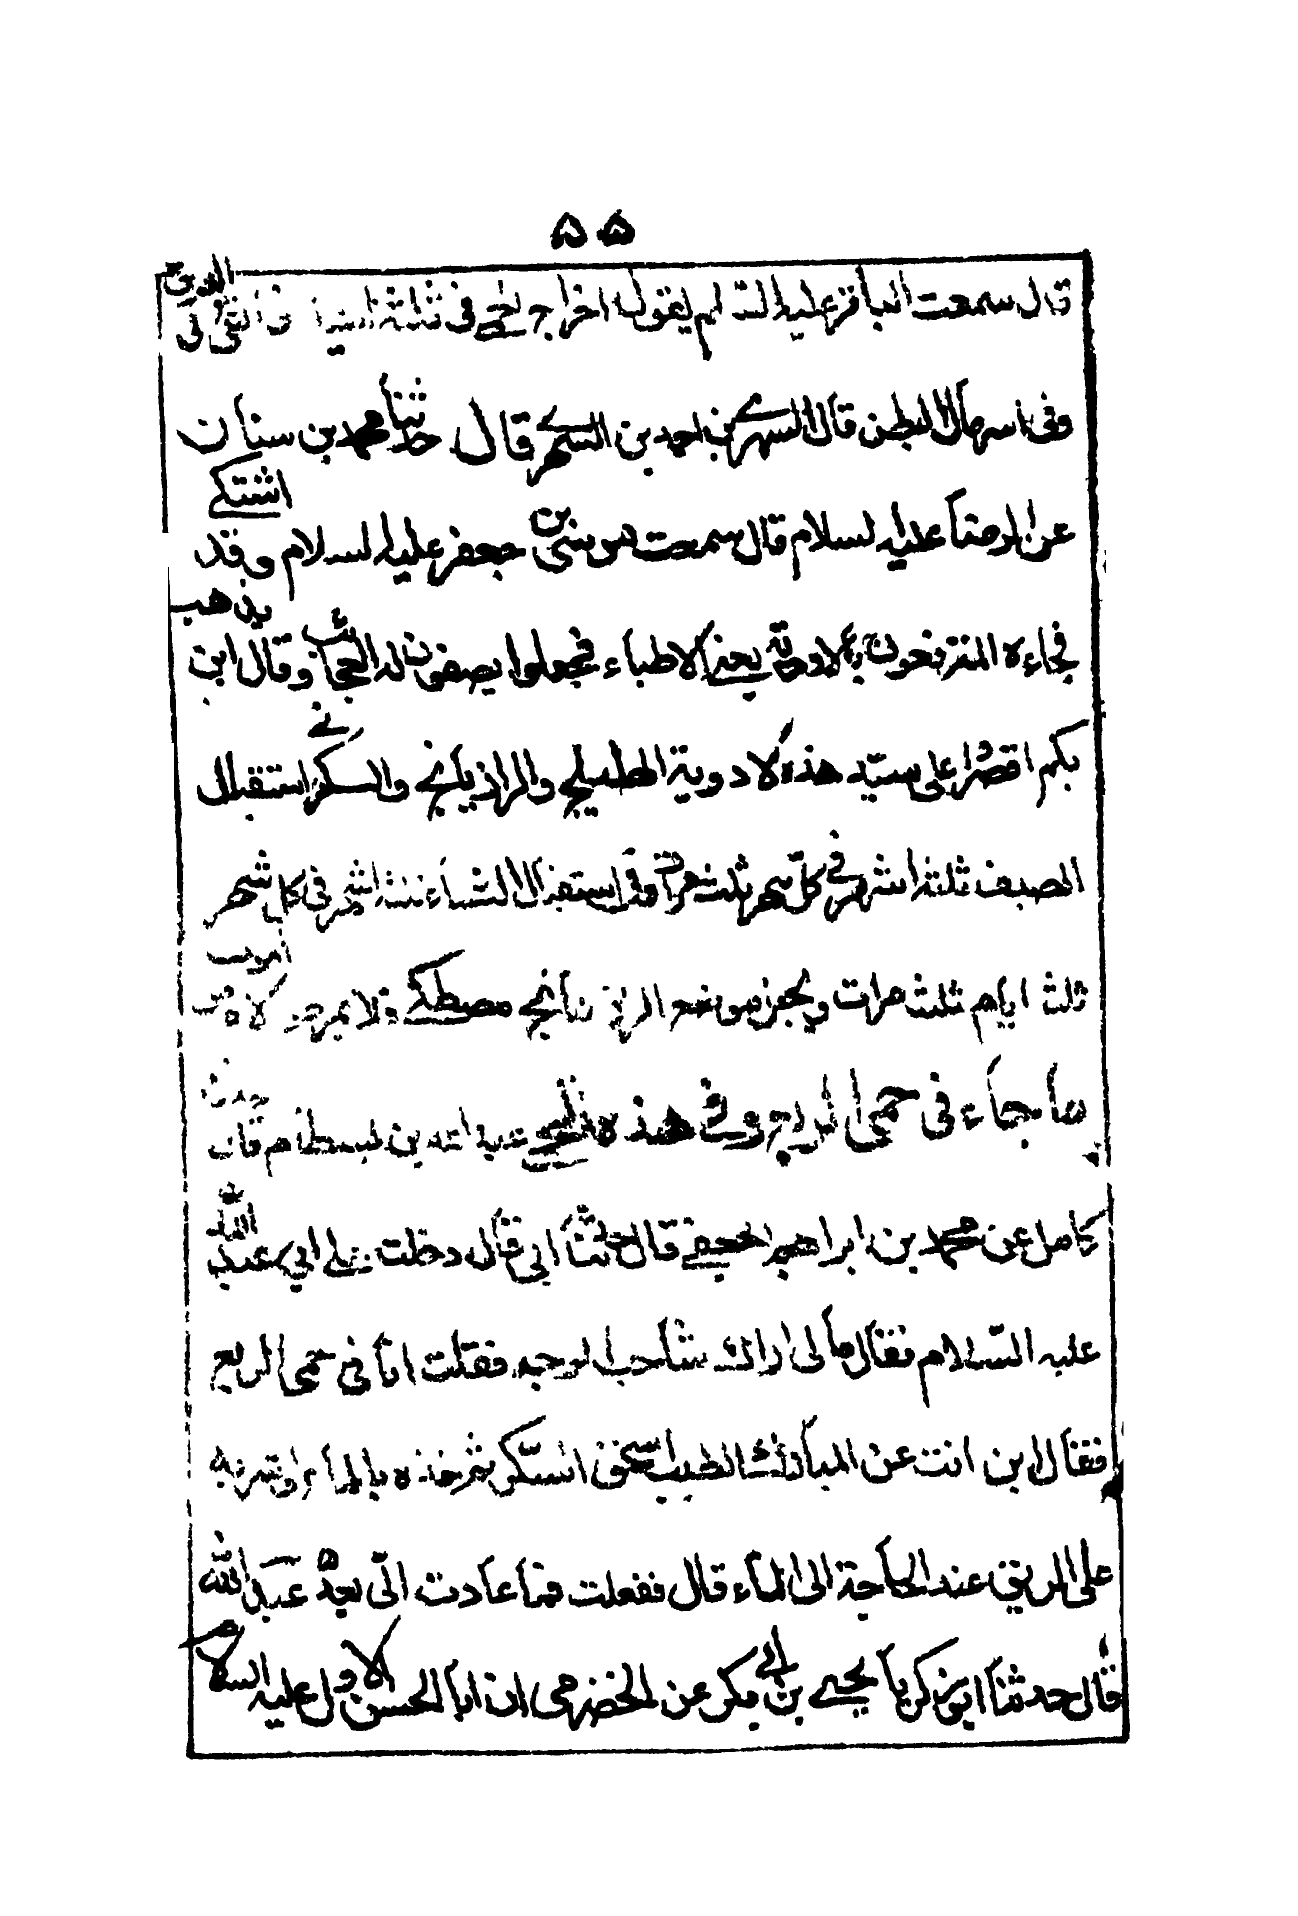 ۵۵
قال سمعت الباقر عليه السلام يقول اخراج الحمى فى ثلثة اشياء فى القئ وفى
وفى اسهال البطن قال السرى بن احمد بن السرى قال حدثنا محمد بن سنان
عن الرضا عليه السلام قال سمعت موسى بن جعفر عليه السلام وقد اشتكى
فجاءه المترفعون بالادوية يعنى الاطباء فجعلوا يصفون له العجائب وقال اين يذهب
بكم اقتصروا على سيد هذه الادوية الهليلج والرازيانج والسكر فى استقبال
الصيف ثلثة اشهر فى كل شهر ثلث مرات وفى استقبال الشتاء ثلثة اشهر فى كل شهر
ثلث ايام ثلث مرات ويجعل موضع الرازيانج مصطكى فلا يمرض الا مرض
ما جاء فى حمى الربع وفى هذه النسخه عبد الله بن بسطام قال حدثنا
كامل عن محمد بن ابراهيم الجعفى قال حدثنا ابى قال دخلت على ابى عبد الله
عليه السلام فقال مالى اراك شاحب الوجه فقلت انا فى حمى الربع
فقال اين انت عن المبارك الطيب اسحق السكر ثم خذه بالماء واشربه
على الريق عند الحاجة الى الماء قال ففعلت فما عادت الى بعد عبد الله
قال حدثنا ابو زكريا يحيى بن ابى بكر عن الحضرمى ان ابا الحسن الاول عليه السلام